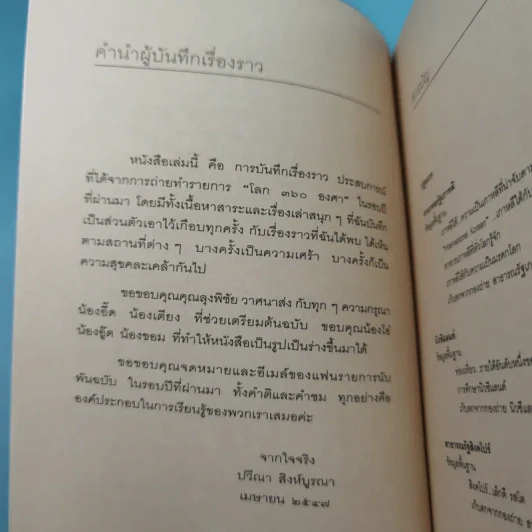 คำนำผู้บันทึกเรื่องราว
หนังสือเล่มนี้ คือ การบันทึกเรื่องราว ประสบการณ์
ที่ได้จากการถ่ายทำรายการ “โลก ๓๖๐ องศา” ในรอบปี
ที่ผ่านมา โดยมีทั้งเนื้อหาสาระและเรื่องเล่าสนุก ๆ ที่ฉันบันทึก
เป็นส่วนตัวเอาไว้เกือบทุกครั้ง กับเรื่องราวที่ฉันได้พบ ได้เห็น
ตามสถานที่ต่าง ๆ บางครั้งเป็นความเศร้า บางครั้งก็เป็น
ความสุขคละเคล้ากันไป
ขอขอบคุณคุณลุงพิชัย วาศนาส่ง กับทุก ๆ ความกรุณา
น้องอี๊ด น้องเตียง ที่ช่วยเตรียมต้นฉบับ ขอบคุณน้องโอ๋
น้องอู๊ด น้องขอม ที่ทำให้หนังสือเป็นรูปเป็นร่างขึ้นมาได้
ขอขอบคุณจดหมายและอีเมล์ของแฟนรายการนับ
พันฉบับ ในรอบปีที่ผ่านมา ทั้งคำติและคำชม ทุกอย่างคือ
องค์ประกอบในการเรียนรู้ของพวกเราเสมอค่ะ
จากใจจริง
ปวีณา สิงห์บูรณา
เมษายน ๒๕๔๗
สาธารณรัฐเกาหลี
ข้อมูลพื้นฐาน
อาหารเกาหลีที่ทั่วโลกรู้จัก
นิวซีแลนด์
ข้อมูลพื้นฐาน
การศึกษานิวซีแลนด์
สาธารณรัฐสิงคโปร์
ข้อมูลพื้นฐาน